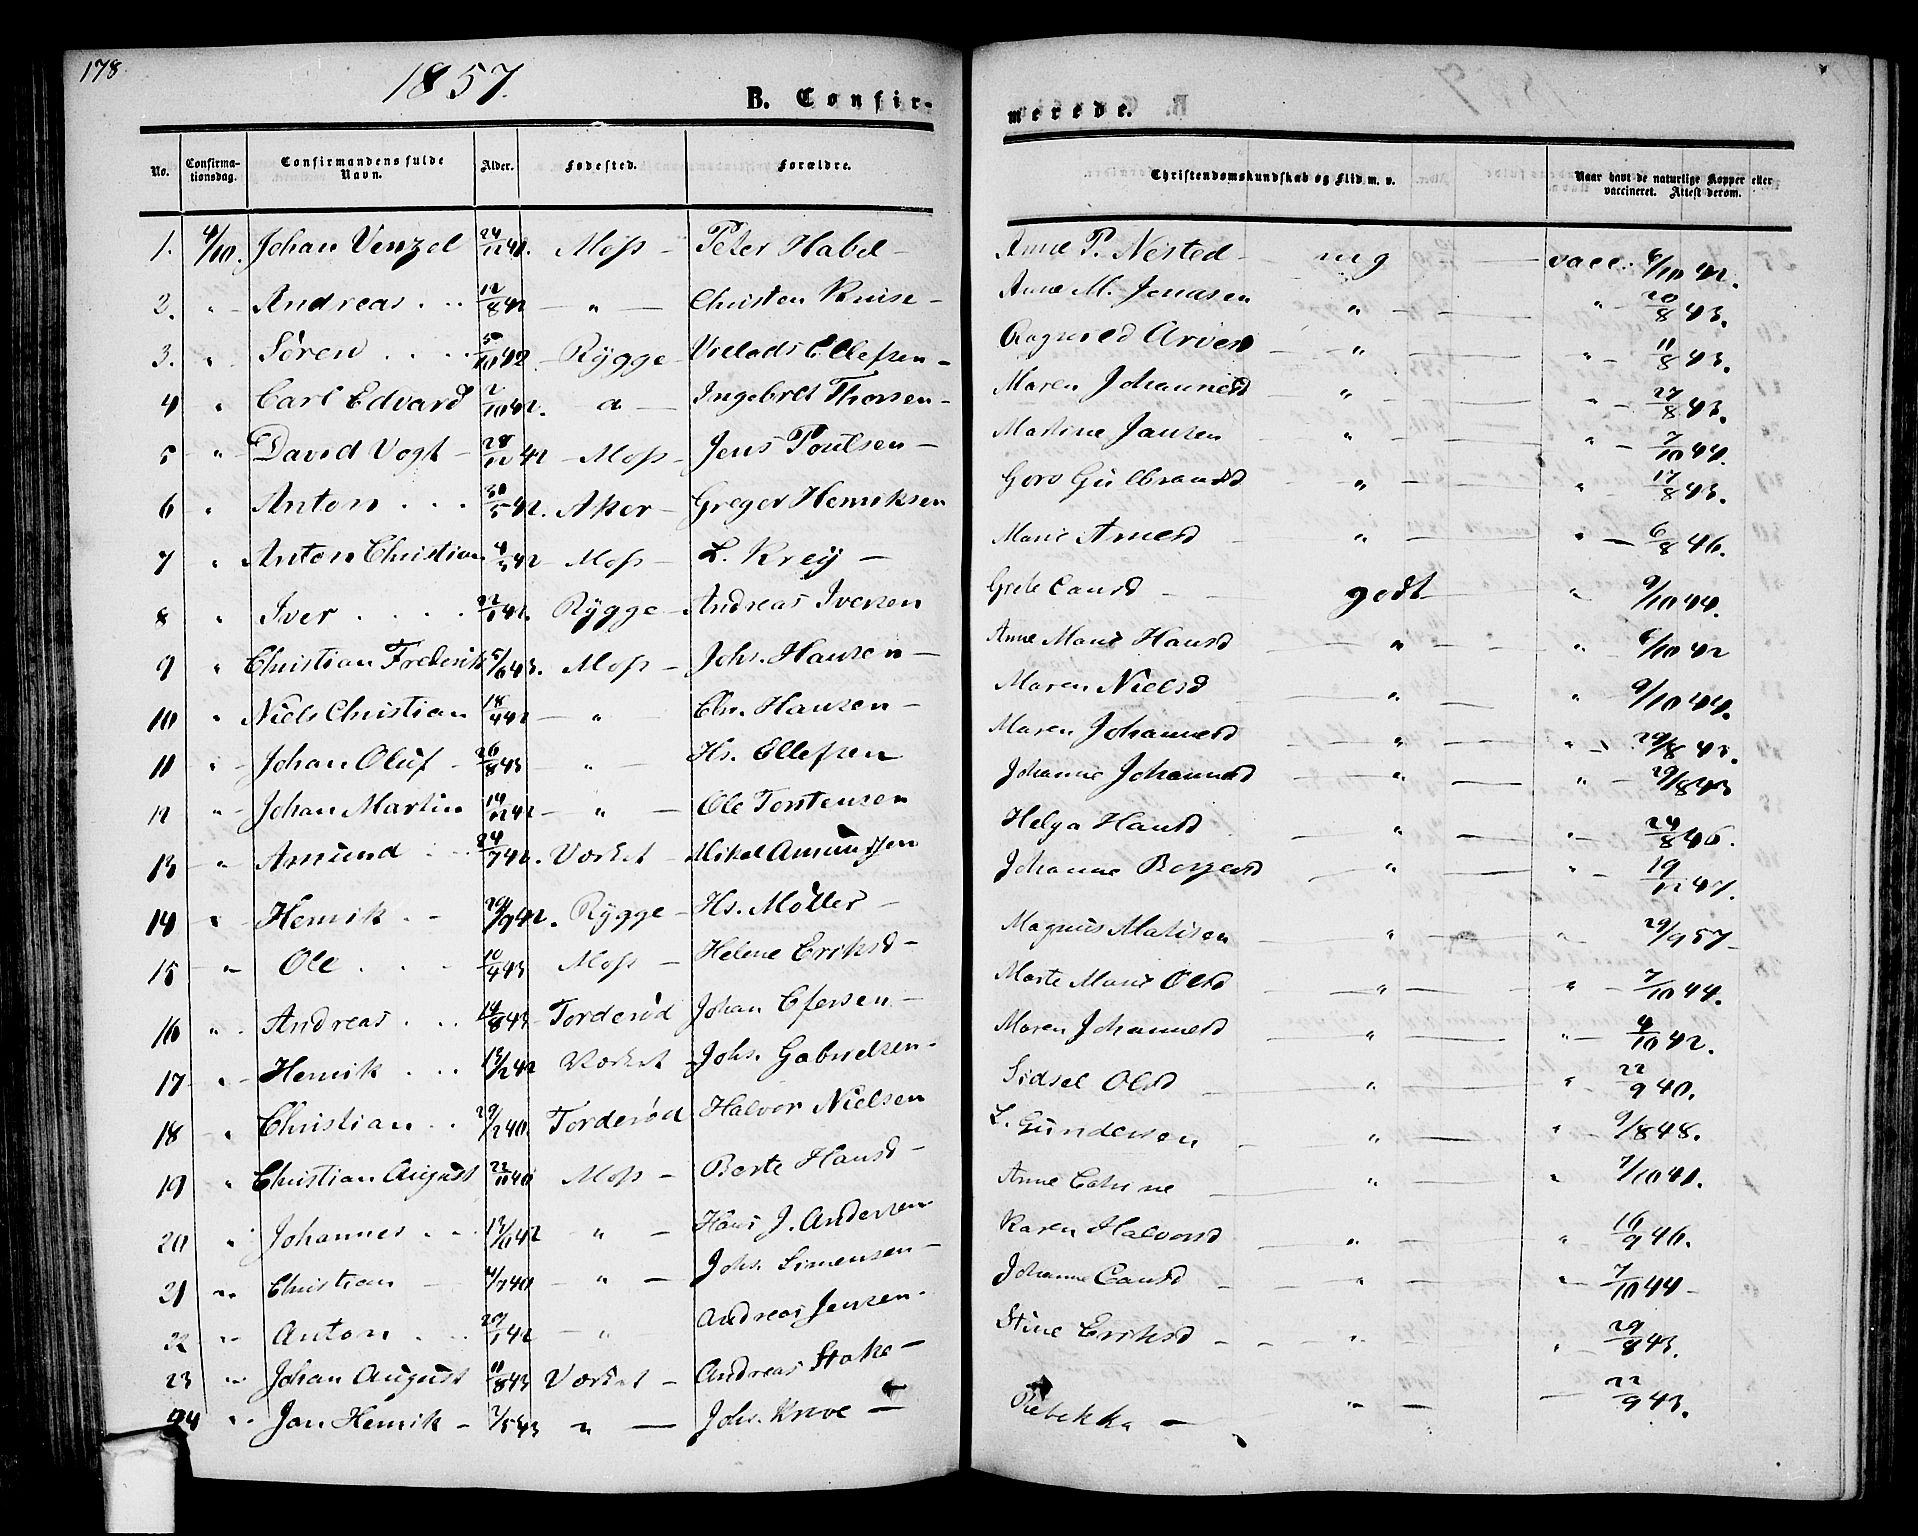 178
1857.
B. Confir-
merede.
No. Confirmationsdag. Confirmandens fulde Navn. Alder. Fødested. Forældre. Christendomskundskab og Flid m. v. Naar havt de naturlige Kopper eller vaccineret. Attest derom.
1. 4/10. Johan Venzel Moss - Peter Habel - Anne P. Nested - mg - vacc. 6/10 42.
2. " Andreas . . 12/8 42 - " - Christen Kruse - Anne M. Jonasen " - " - 20/8 43.
3. " Søren . . . . 5/10 42 - Rygge - Ellefsen - Ragnild - " - " - 11/8 43.
4 " Carl Edvard 2/10 42. - Ingebret Thorsen - Maren Johannesd " - " - 27/8 43.
5 " David Vogt - 28/11 42 - Moss - Jens Poulsen - Martine Jansen " - " - 7/10 44.
6 " Anton . . . 42. Aker - Greger Henriksen Goro Gulbrandsd " - " - 17/8 43.
7 " Anton Christian 42 - Moss - L. Krey - Marie Arnesd - " - " - 6/8 46.
8 " Iver . . . . 42. Rygge - Andreas Iversen Grete - godt " - 9/10 44.
9 " Christian Frederik 43. Moss - Johs. Hansen - Anne Marie Hansd - " - " - 6/10 42
10 " Niels Christian 18/4 42 - " - Chr. Hansen - Maren Nielsd - " - " 9/10 44.
11 " Johan Oluf - 26/8 43 - " - Hs. Ellefsen Maren Johannesd - " - " - 29/8 43.
12 " Johan Martin 14/12 42 - " - Ole Torstensen Johanne Johannesd - " - " - 29/8 43
13 " Amund . . . 24/7 42. Værket - Mikel Amundsen Helga Hansd - " - " - 24/8 46.
14 " Henrik . - 29/9 42. Rygge - Hs. Møller - Johanne " - " - 19/12 47.
15 - " - Ole . . . 10/4 43 Moss - Helene Eriksd - Magnus Matisen - " - " - 29/9 57 -
16 " Andreas . . . 14/8 43 - Torderød Johan - Marte Marie Olsd - " - " - 7/10 44.
17 " - Henrik . . . 42 Værket - Johs. Gabrielsen - Maren Johannesd " - " - 4/10 42.
18 " Christian . . 29/2 40. Torderød Halvor Nielsen Sidsel Olsd " - " 22/9 40.
19 " Christian August 22/11 40 Moss - Berte Hansd - L. Gundersen - " - " - 9/8 48.
20 " Johannes . . . 42 " - Hans J. Andersen Anne - " - " 7/10 41.
21 " Christian - 4/7 40 - " - Johs. Simensen - Karen Halvorsd - " - " 16/9 46.
22 " Anton . . . 42 - " - Andreas Jensen - Johanne - " - " - 7/10 44 -
23 " Johan August 11/8 43 - Værket - Andreas Stake - Stine Eriksd - " - " - 29/8 43.
24 " Jan Henrik - 43 " - Johs. - Rebekka - " - - 22/9 43.